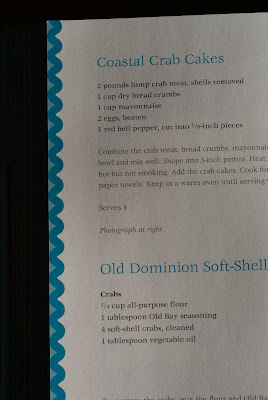 Coastal Crab Cakes
2 pounds lump crab meat, shells removed
1 cup dry bread crumbs
1 cup mayonnaise
2 eggs, beaten
1 red bell pepper, cut into 1/8-inch pieces
Combine the crab meat, bread crumbs, mayonnais
bowl and mix well. Shape into 3-inch patties. Heat
hot but not smoking. Add the crab cakes. Cook for
paper towels. Keep in a warm oven until serving
Serves 4
Photograph at right.
Old Dominion Soft-Shell
Crabs
3/4 cup all-purpose flour
1 tablespoon Old Bay seasoning
4 soft-shell crabs, cleaned
1 tablespoon vegetable oil
the crabs, mix the flour and Old Ba